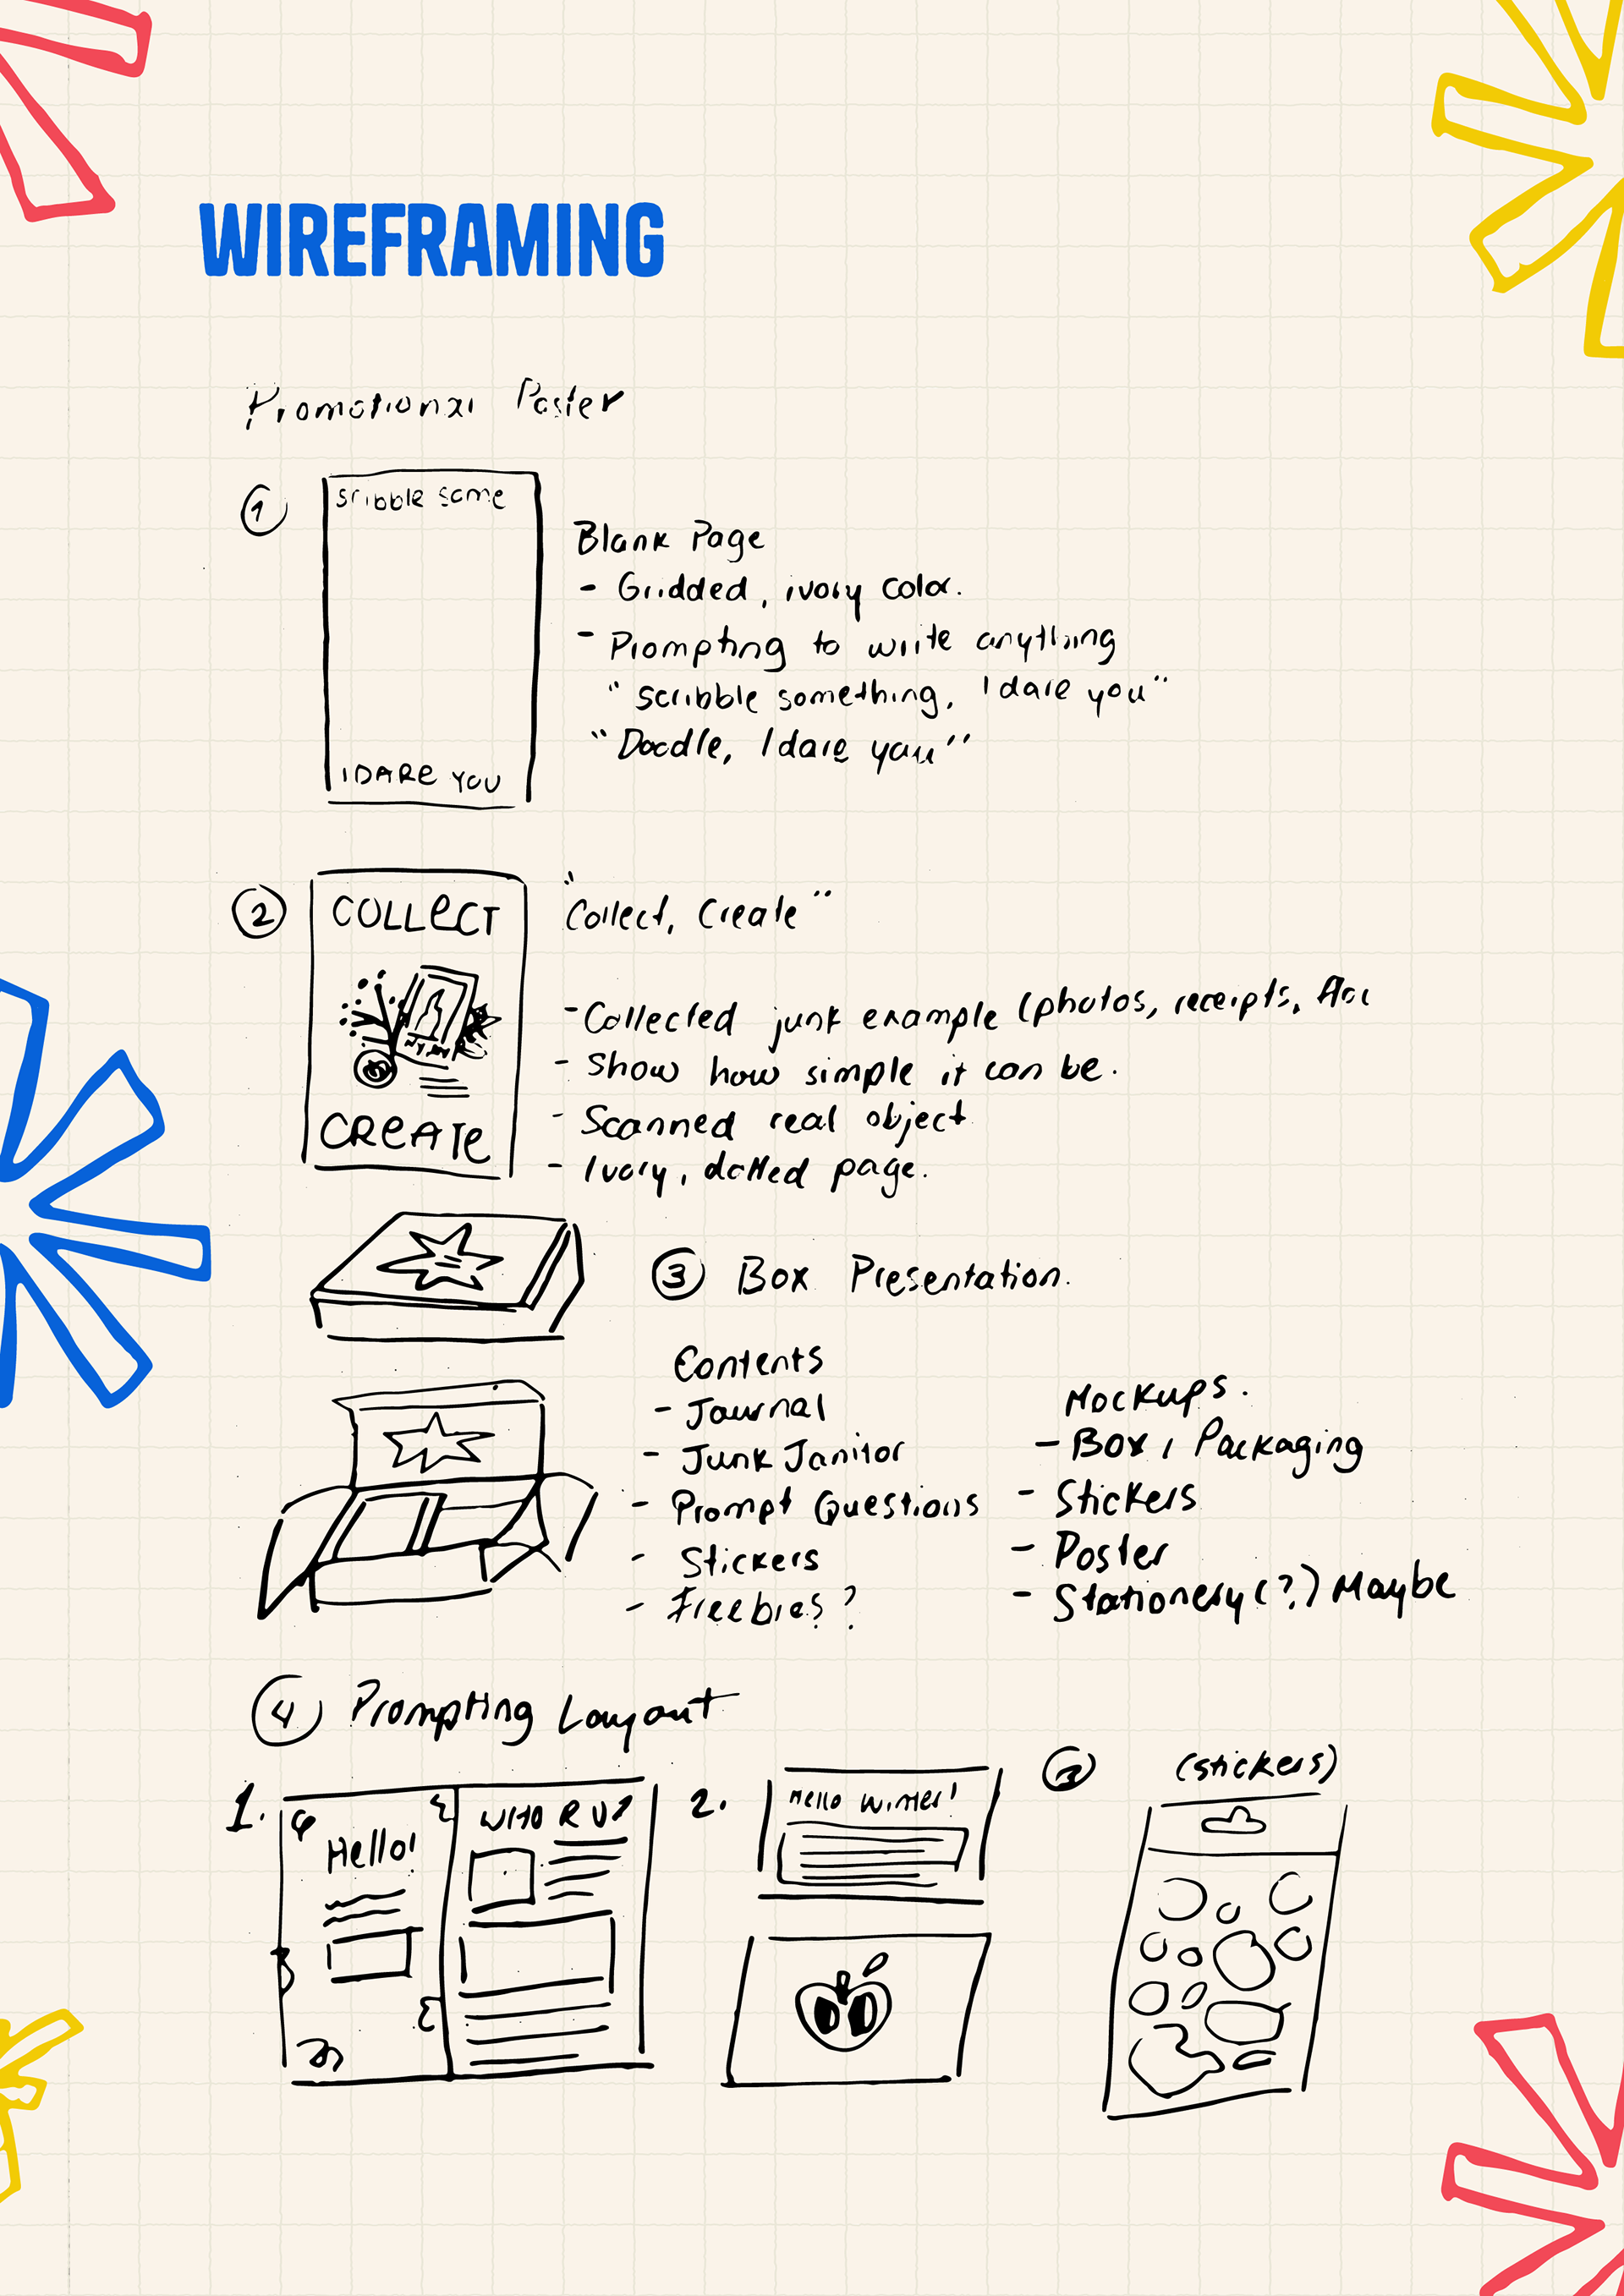 WIREFRAMING
Promotional Poster
1
scribble some
I DARE YOU
Blank Page
- Gridded, ivory color.
- Prompting to write anything
"Scribble something, I dare you"
"Doodle, I dare you"
2
COLLECT
CREATE
"Collect, Create"
- Collected junk example (photos, receipts,
- Show how simple it can be.
- Scanned real object
- Ivory, dotted page.
3 Box Presentation.
Contents
- Journal
- Junk Janitor
- Prompt Questions
- Stickers
- Freebies?
Mockups.
- Box, Packaging
- Stickers
- Poster
- Stationery (?) Maybe
4 Prompting Layout
1.
Hello!
WHO R U?
2.
Hello Winter!
3
(stickers)